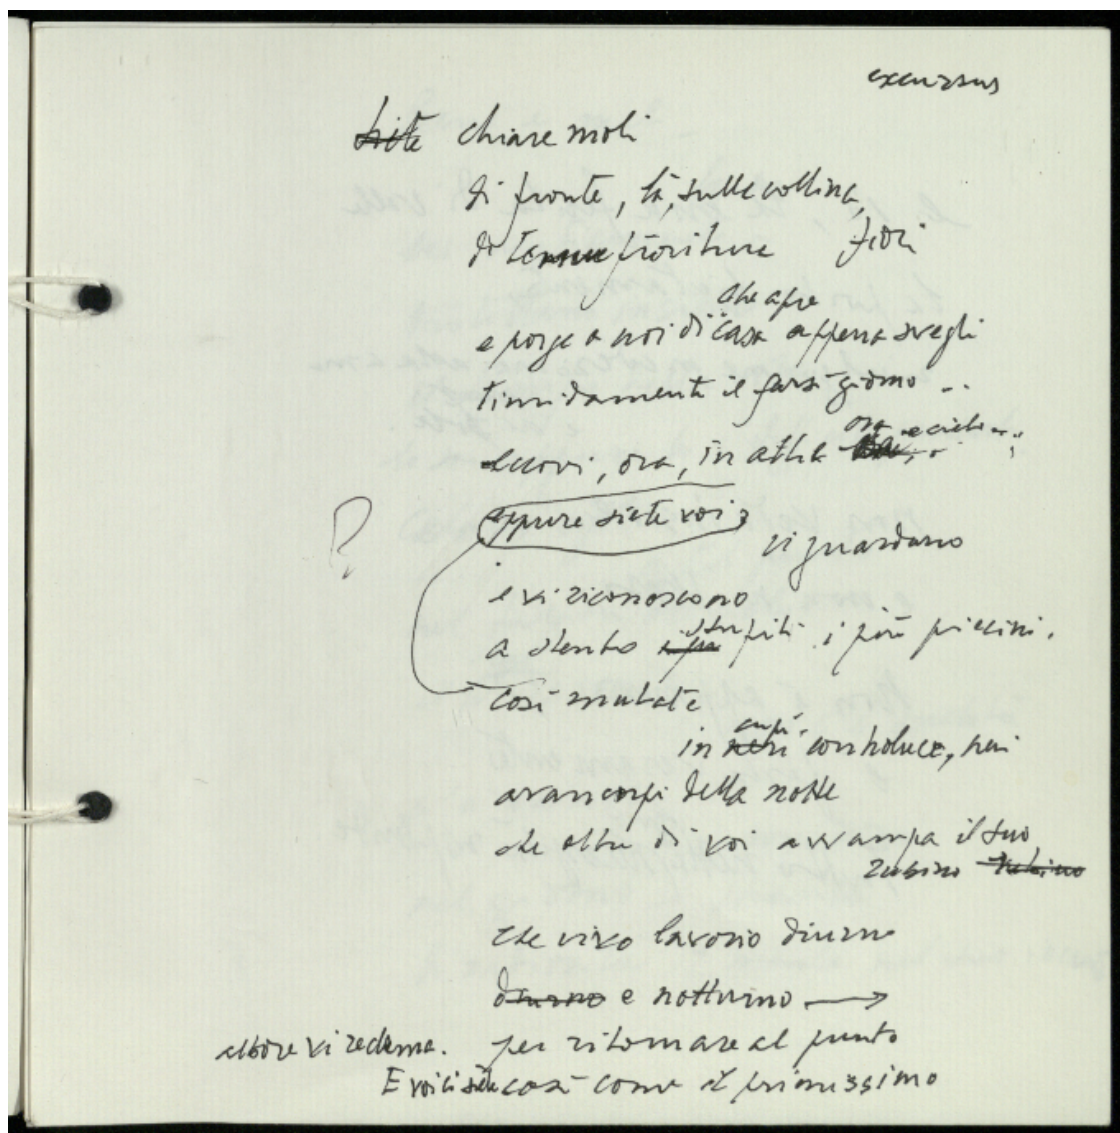 excursus
siete chiare moli
di fronte, là, sulla collina,
di tenue fioritura fiori
che apre
e porge a noi di casa appena svegli
timidamente il farsi giorno ..
eccovi, ora, in altra ora e cielo
eppure siete voi,
vi guardano
e vi riconoscono
a stento stupiti i più piccini.
così mutate
cupi
in neri controluce, nei
avancorpi della notte
che oltre di voi avvampa il suo
rubino rubino
che vivo lavorio diurno
diurno e notturno →
per ritornare al punto
albore vi reclama.
E voi siete così come il primissimo